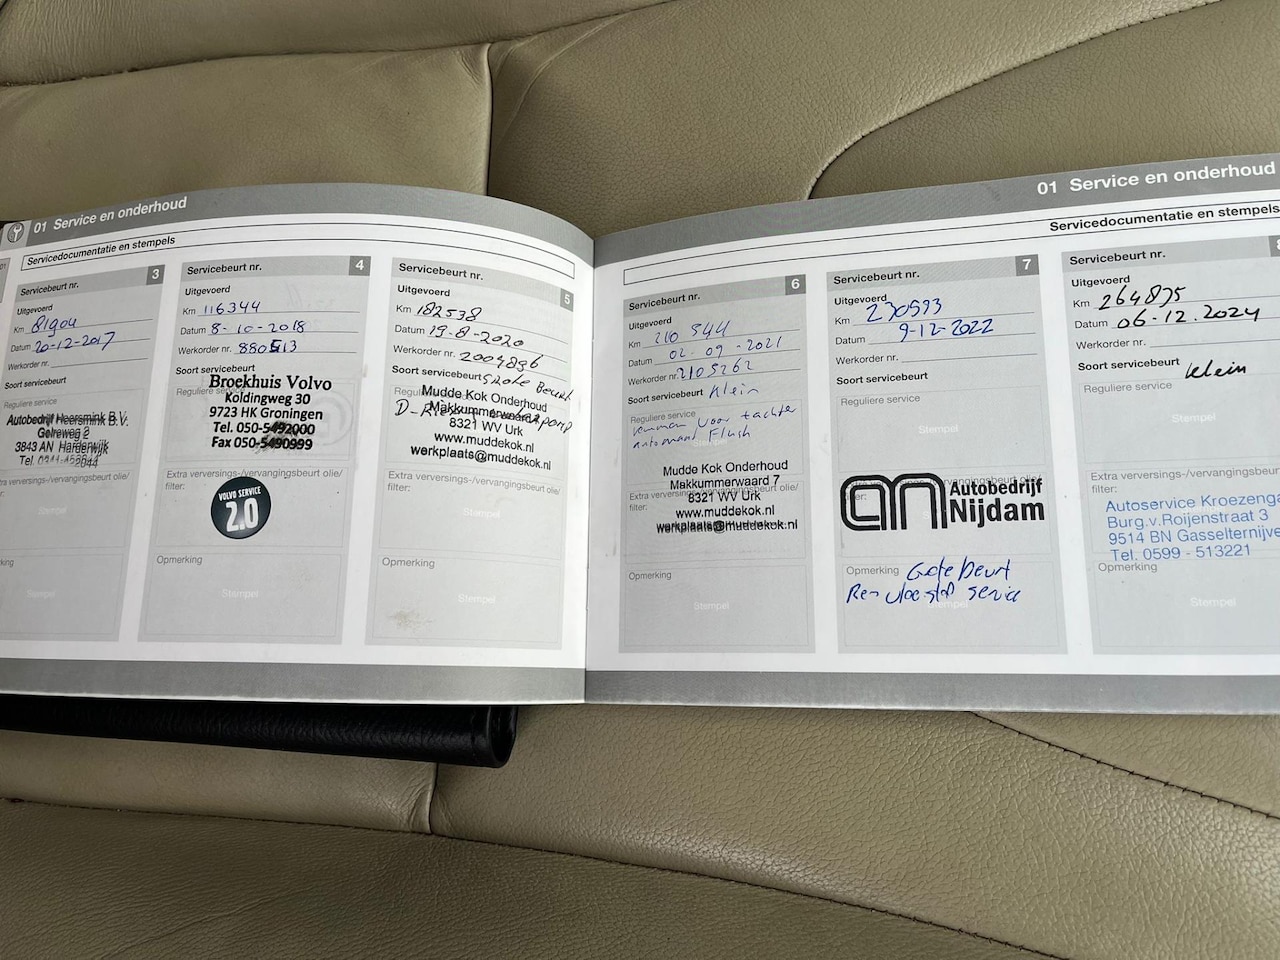 01 Service en onderhoud
Servicedocumentatie en stempels
Servicebeurt nr. 3
Uitgevoerd
Km 81904
Datum 20-12-2017
Werkorder nr.
Soort servicebeurt
Reguliere service
Autobedrijf Heersmink B.V.
Gelreweg 2
3843 AN Harderwijk
Tel.
Extra verversings-/vervangingsbeurt olie/
filter:
Stempel
Stempel
Servicebeurt nr. 4
Uitgevoerd
Km 116344
Datum 8-10-2018
Werkorder nr. 880513
Soort servicebeurt
Reguliere service
Broekhuis Volvo
Koldingweg 30
9723 HK Groningen
Tel. 050-5492000
Fax 050-5490999
Extra verversings-/vervangingsbeurt olie/
filter:
VOLVO SERVICE
2.0
Opmerking
Stempel
Servicebeurt nr. 5
Uitgevoerd
Km 182538
Datum 19-8-2020
Werkorder nr. 2004896
Soort servicebeurt Grote Beurt
Mudde Kok Onderhoud
Makkummerwaard 7
8321 WV Urk
www.muddekok.nl
werkplaats@muddekok.nl
Extra verversings-/vervangingsbeurt olie/
filter:
Stempel
Opmerking
Stempel
01 Service en onderhoud
Servicedocumentatie en stempels
Servicebeurt nr. 6
Uitgevoerd
Km 210 544
Datum 02-09-2021
Werkorder nr. 2105262
Soort servicebeurt Klein
remmen voor + achter
automaat Flush
Mudde Kok Onderhoud
Makkummerwaard 7
Extra verversings-/vervangingsbeurt olie/
filter:
8321 WV Urk
www.muddekok.nl
werkplaats@muddekok.nl
Opmerking
Stempel
Servicebeurt nr. 7
Uitgevoerd
Km 230593
Datum 9-12-2022
Werkorder nr.
Soort servicebeurt
Reguliere service
Stempel
filter:
an Autobedrijf
Nijdam
Opmerking Grote beurt
Remvloeistof service
Stempel
Servicebeurt nr. 8
Uitgevoerd
Km 264875
Datum 06-12.2024
Werkorder nr.
Soort servicebeurt klein
Reguliere service
Stempel
Extra verversings-/vervangingsbeurt olie/
filter:
Autoservice Kroezenga
Burg.v.Roijenstraat 3
9514 BN Gasselternijve
Tel. 0599 - 513221
Opmerking
Stempel